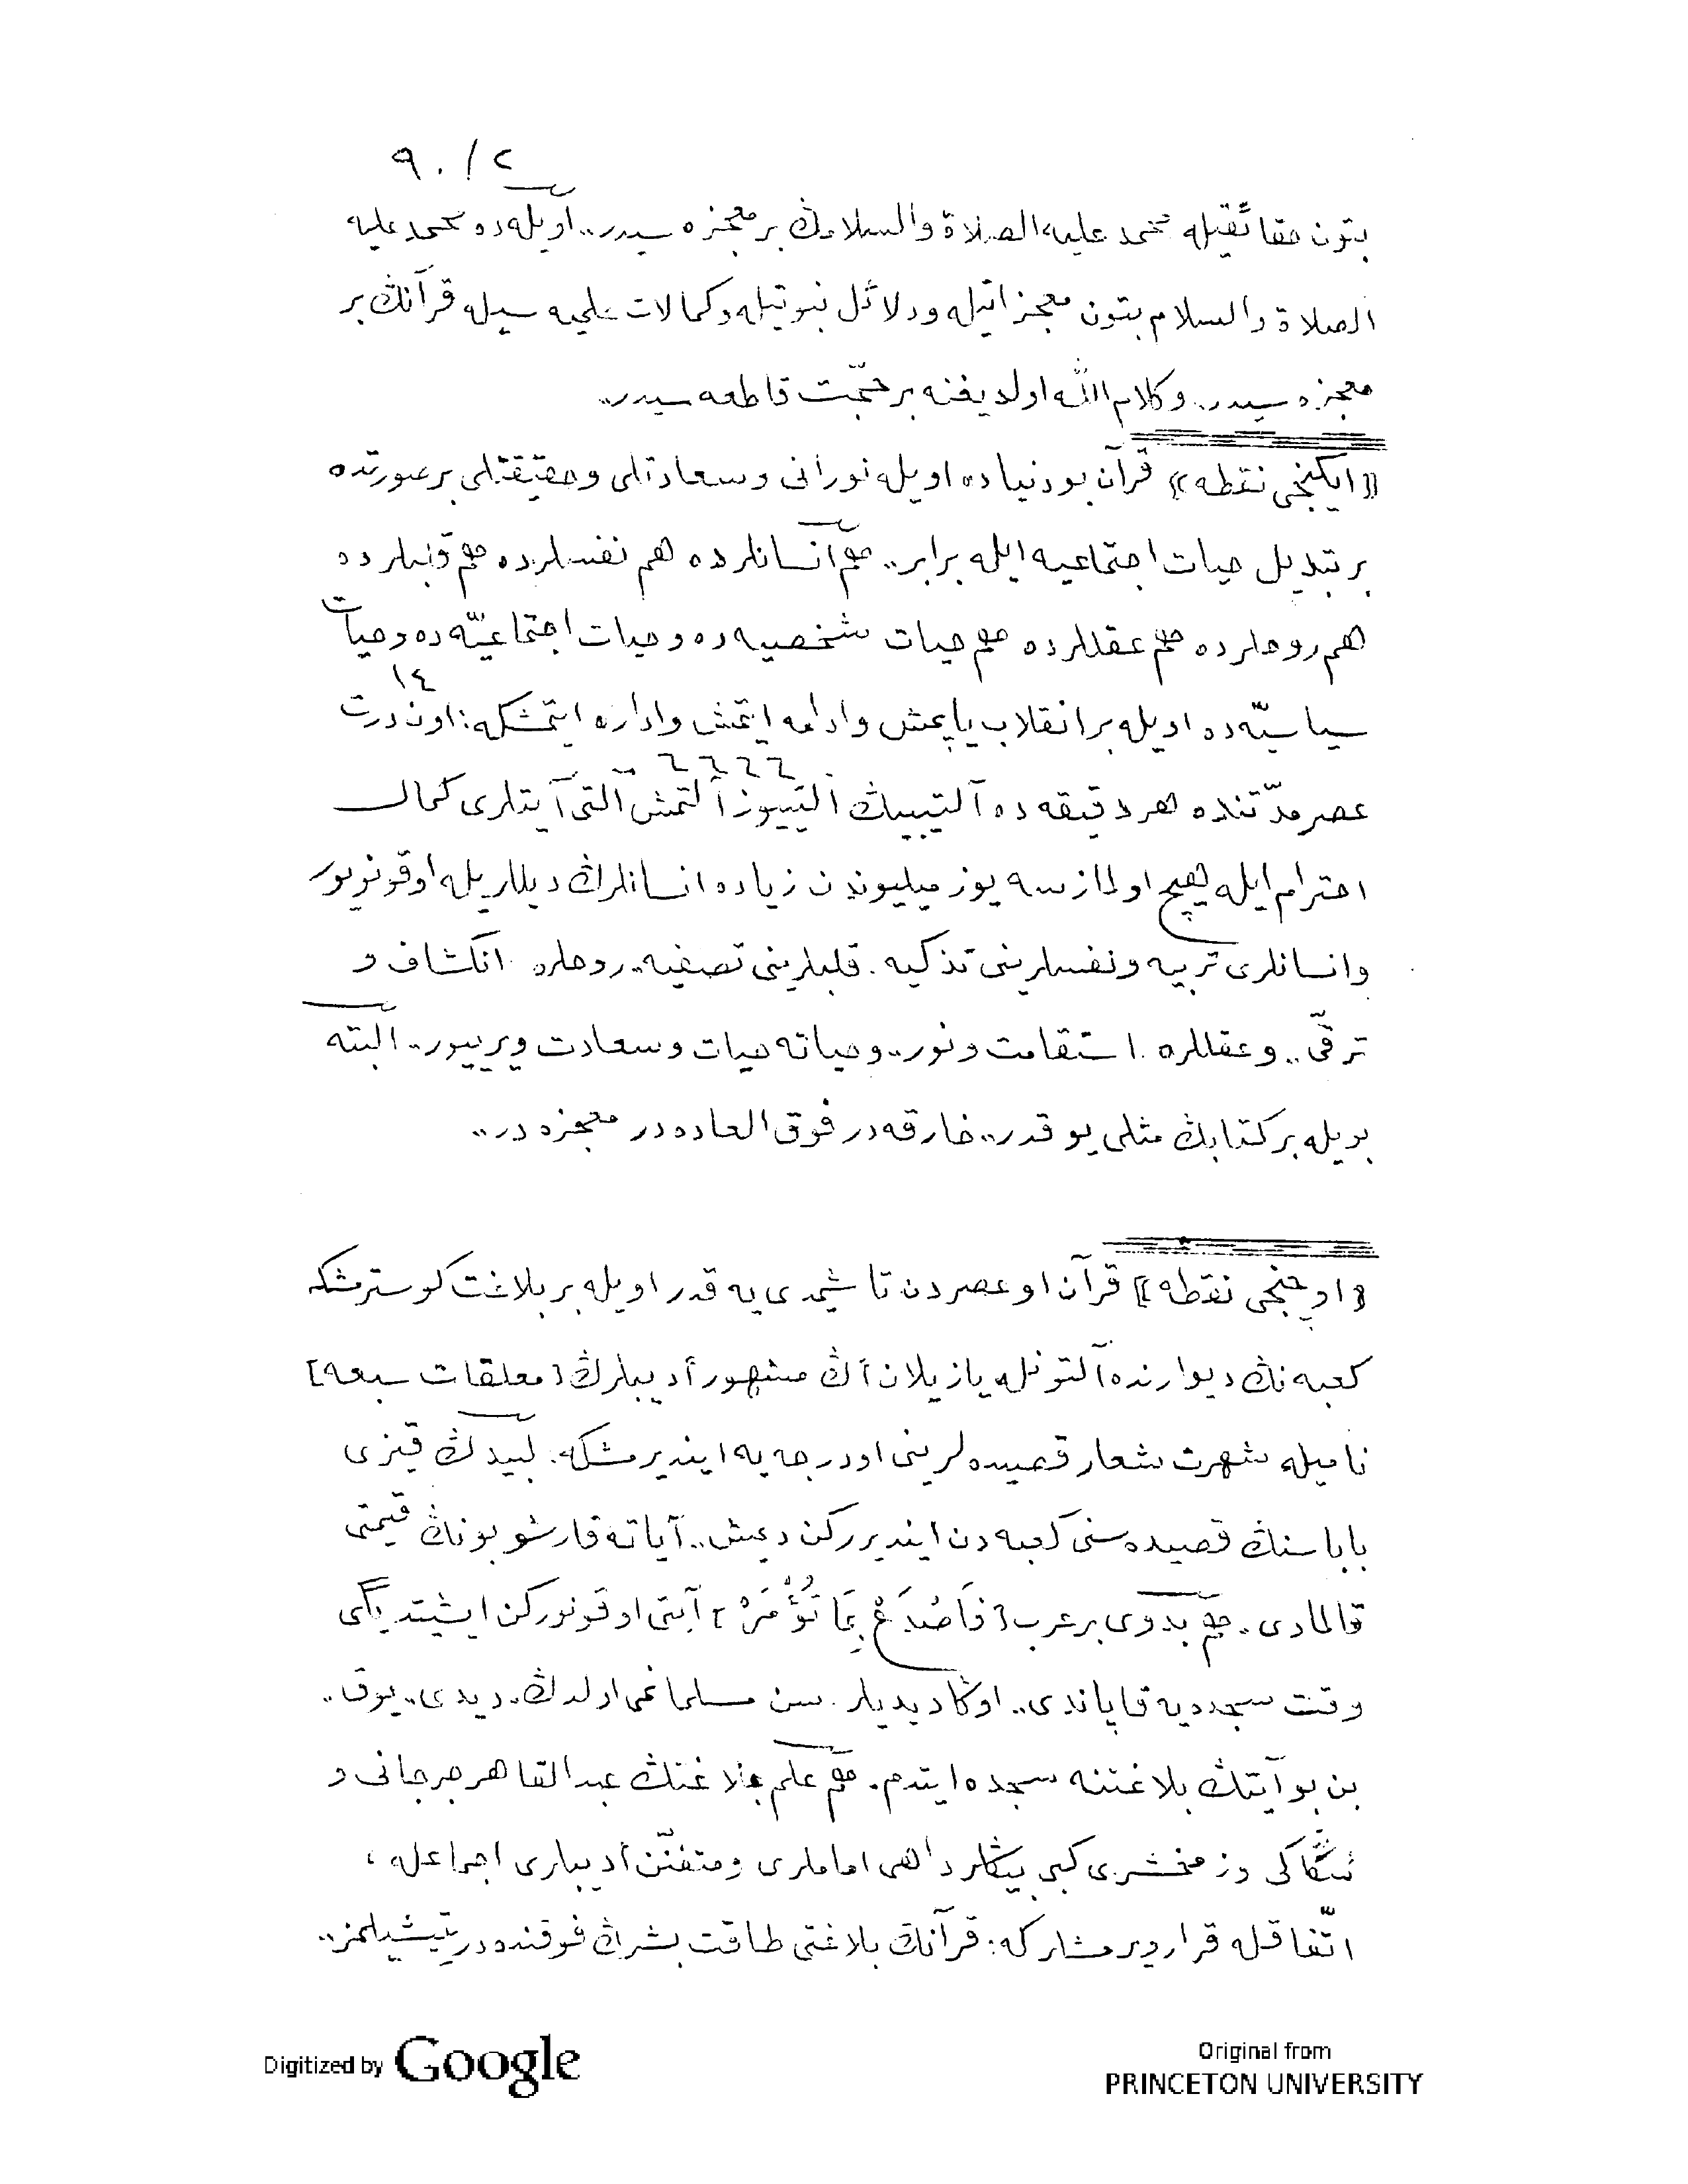 ٩٠/٢
بتون حقائقيله محمد عليه الصلاة والسلامڭ بر معجزه سيدر.. اويله ده محمد عليه
الصلاة والسلام بتون معجزاتيله ودلائل نبوتيله وكمالات علميه سيله قرآنڭ بر
معجزه سيدر.. وكلام اللّه اولديغنه بر حجّت قاطعه سيدر..
﴿ايكنجى نقطه﴾ قرآن بو دنياده اويله نورانى وسعادتلى وحقيقتلى بر صورتده
بر تبديل حيات اجتماعيه ايله برابر.. هم انسانلرده هم نفسلرده هم قلبلرده
هم روحلرده هم عقللرده هم حيات شخصيه ده وحيات اجتماعيّه ده وحيات
١٤
سياسيّه ده اويله بر انقلاب ياپمش وادامه ايتمش واداره ايتمشكه: اون درت
٦٦٦٦
عصر مدّتنده هر دقيقه ده آلتيبيڭ آلتييوز آلتمش آلتى آيتلرى كمال
احترام ايله هيچ اولمازسه يوز ميليوندن زياده انسانلرڭ ديللريله اوقونويور
وانسانلرى تربيه ونفسلرينى تذكيه. قلبلرينى تصفيه.. روحلره انكشاف و
ترقّى.. وعقللره استقامت ونور.. وحياته حيات وسعادت ويرييور.. البته
بويله بر كتابڭ مثلى يوقدر.. خارقه در فوق العاده در معجزه در..
﴿اوچنجى نقطه﴾ قرآن او عصردن تا شيمدى يه قدر اويله بر بلاغت كوسترمشكه
كعبه نڭ ديوارنده آلتونله يازيلان أڭ مشهور أديبلرڭ [معلقات سبعه]
ناميله شهرت شعار قصيده لرينى او درجه يه اينديرمشكه: لبيدڭ قيزى
باباسنڭ قصيده سنى كعبه دن اينديرركن ديمش.. آياته قارشو بونڭ قيمتى
قالمادى. هم بدوى بر عرب [فَاصْدَعْ بِمَا تُؤْمَرُ] آيتى اوقونوركن ايشيتديگى
وقت سجده يه قاپاندى.. اوڭا ديديلر. سن مسلمانمى اولدڭ. ديدى.. يوق..
بن بو آيتڭ بلاغتنه سجده ايتدم. هم علم بلاغتڭ عبد القاهر جرجانى و
سكّاكى وزمخشرى كبى بيڭلر داهى اماملرى ومتفنّن أديبلرى اجماعله ،
اتّفاقله قرار ويرمشلر كه: قرآنڭ بلاغتى طاقت بشرڭ فوقنده در يتيشيلمز..
Digitized by Google
Original from
PRINCETON UNIVERSITY